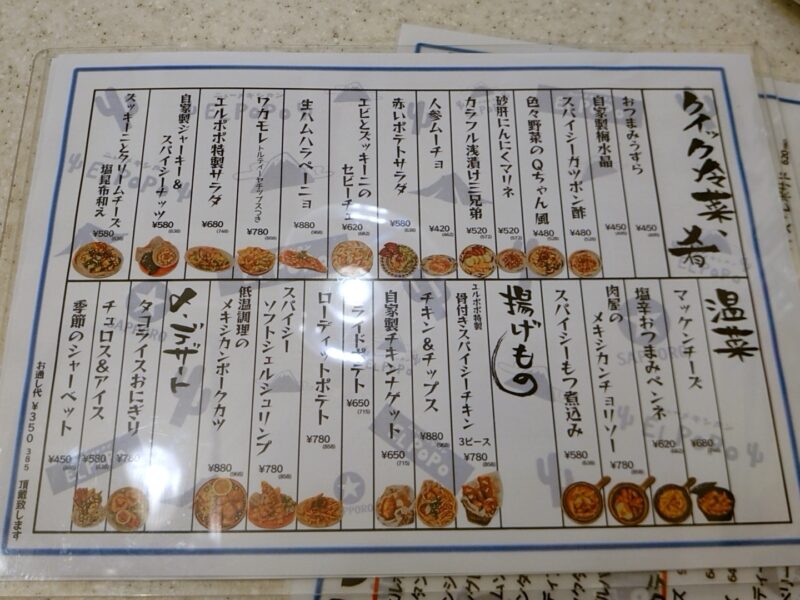 クイック冷菜、肴
おつまみうずら
¥450
自家製梅水晶
¥450
スパイシーガツポン酢
¥480
(528)
色々野菜のQちゃん風
¥480
(528)
砂肝にんにくマリネ
¥520
(572)
カラフル浅漬け三兄弟
¥520
(572)
人参ムーチョ
¥420
(462)
赤いポテトサラダ
¥580
(638)
エビとズッキーニの
セビーチェ
¥620
(682)
生ハムハラペーニョ
¥880
(968)
ワカモレトルティーヤチップスつき
¥780
(858)
エルポポ特製サラダ
¥680
(748)
自家製ジャーキー&
スパイシーナッツ
¥580
(638)
ズッキーニとクリームチーズ
塩昆布和え
¥580
(638)
温菜
マッケンチーズ
¥680
塩辛おつまみペンネ
¥620
(682)
肉屋の
メキシカンチョリソー
¥780
(858)
スパイシーもつ煮込み
¥580
(638)
揚げもの
エルポポ特製
骨付きスパイシーチキン
3ピース
¥780
(858)
チキン&チップス
¥880
(968)
自家製チキンナゲット
¥650
(715)
ライドポテト
¥650
(715)
ローディットポテト
¥780
(858)
スパイシー
ソフトシェルシュリンプ
¥780
(858)
低温調理の
メキシカンポークカツ
¥880
(968)
〆・デザート
タコライスおにぎり
¥780
チュロス&アイス
¥580
(638)
季節のシャーベット
¥450
お通し代 ¥350 385 頂戴致します